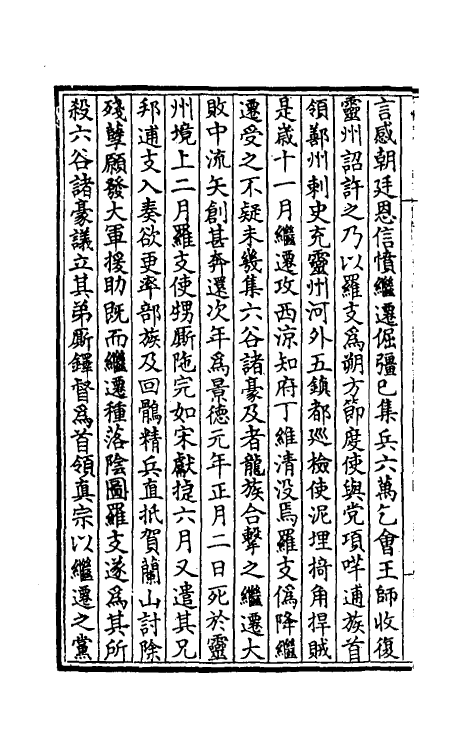 言感朝廷恩信憤繼遷倔彊已集兵六萬乞會王師收復
靈州詔許之乃以羅支為朔方節度使與党項咩逋族首
領鄭州刺史充靈州河外五鎮都巡檢使泥埋掎角捍賊
是歲十一月繼遷攻西涼知府丁維清没焉羅支偽降繼
遷受之不疑未幾集六谷諸豪及者龍族合擊之繼遷大
敗中流矢創甚奔還次年為景德元年正月二日死於靈
州境上二月羅支使甥厮陁完如宋獻㨗六月又遣其兄
邦逋支入奏欲更率部族及回鶻精兵直抵賀蘭山討除
殘孽願發大軍援助既而繼遷種落陰圖羅支遂為其所
殺六谷諸豪議立其弟厮鐸督為首領真宗以繼遷之黨